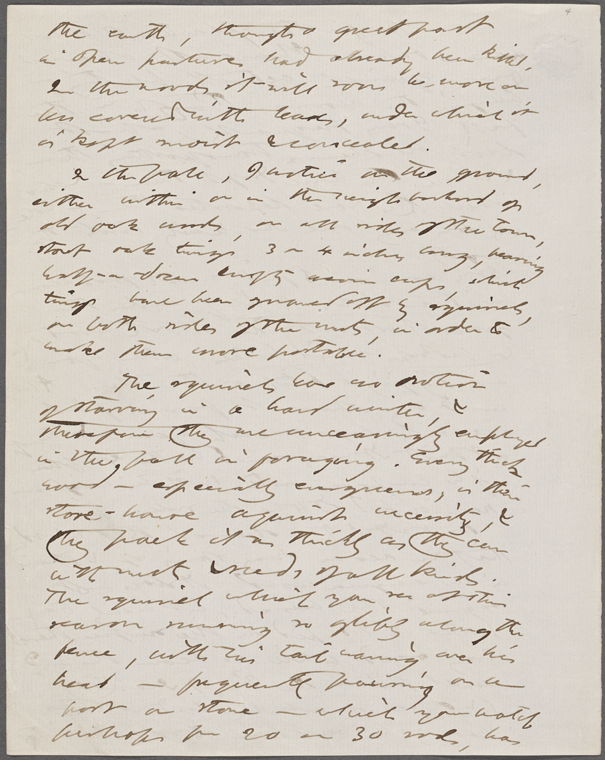 the earth, though a great part
in open pastures had already been killed,
In the woods it will soon be more or
less covered with leaves, under which it
is kept moist & concealed.
In the fall, I notice on the ground,
either within or in the neighborhood of
old oak woods, on all sides of the town,
stout oak twigs 3 or 4 inches long, bearing
half-a-dozen empty acorn cups, which
twigs have been gnawed off by squirrels,
on both sides of the nuts, in order to
make them more portable.
The squirrels have no notion
of starving in a hard winter, &
therefore they are unceasingly employed
in the fall in foraging. Every thick
wood — especially evergreens, is their
store-house against necessity, &
they pack it as thickly as they can
with nuts & seeds of all kinds.
The squirrel which you see at this
season running so glibly along the
fence, with his tail waving over his
head — frequently pausing on a
post or stone — which you watch
perhaps for 20 or 30 rods, has